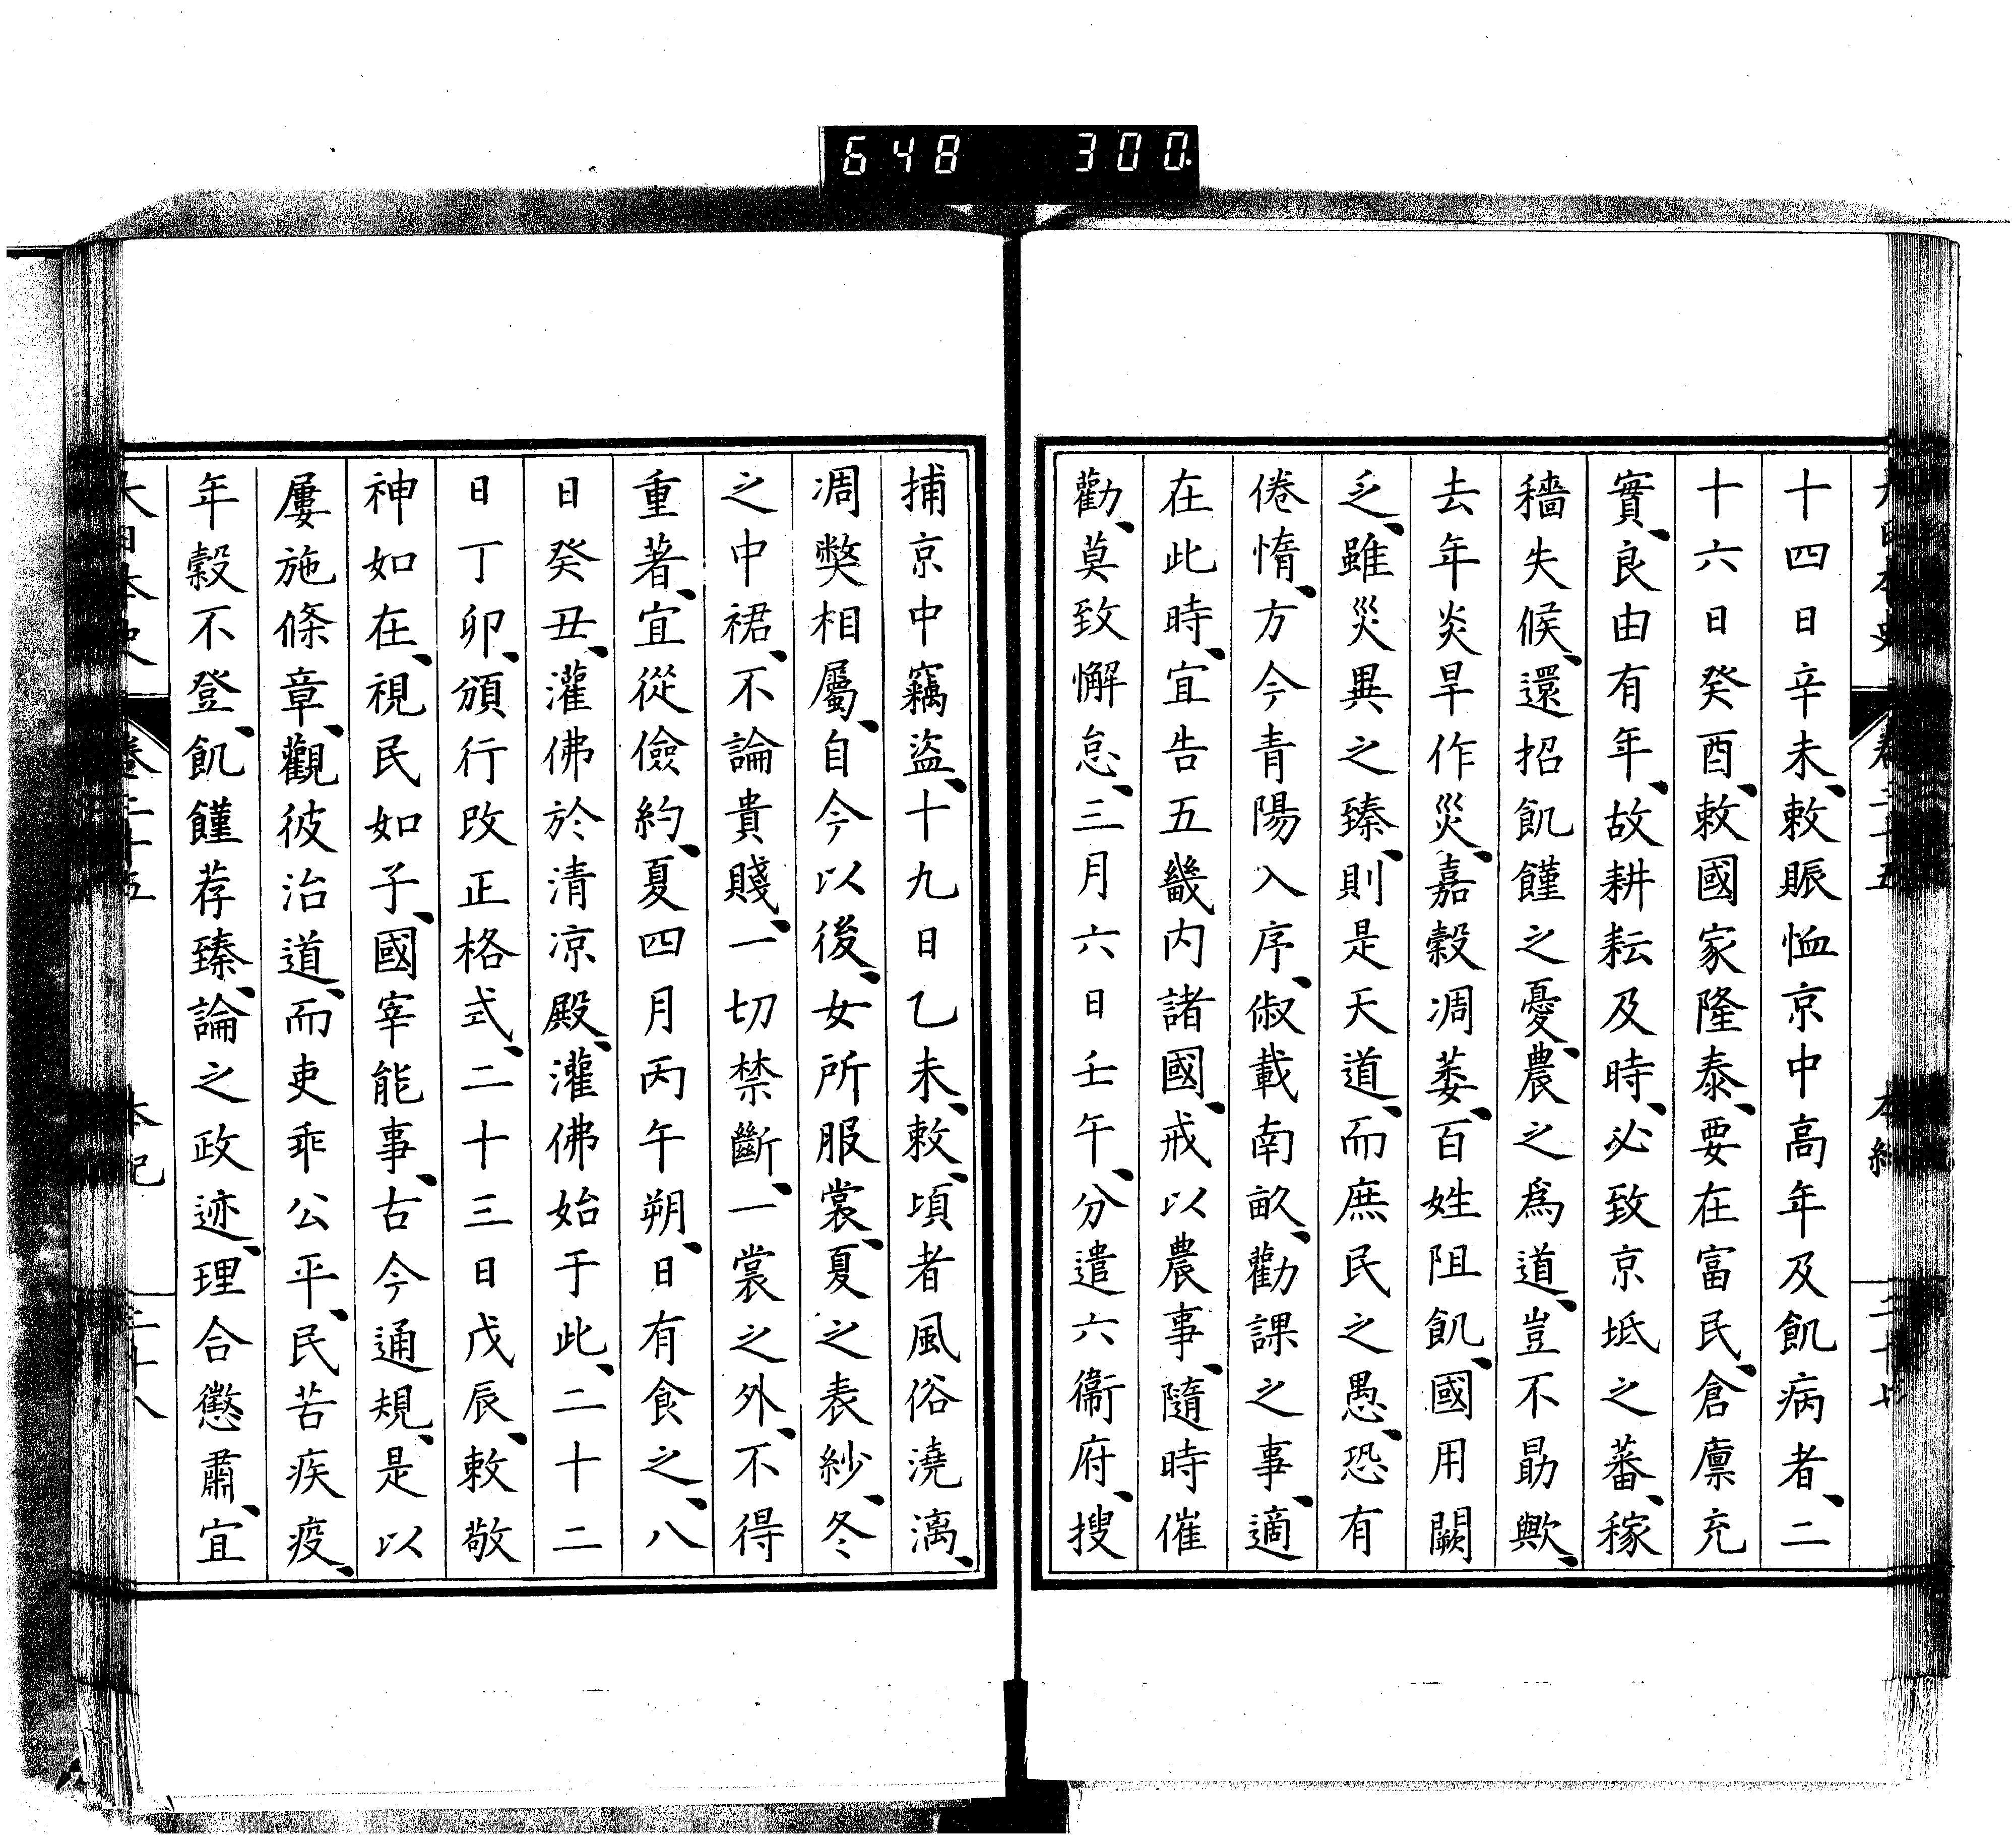 648 300.
十四日辛未、敕賑恤京中高年及飢病者、二
十六日癸酉、敕國家隆泰、要在富民、倉廪充
實、良由有年、故耕耘及時、必致京坻之蕃、稼
穡失候、還招飢饉之憂、農之爲道、豈不勗歟、
去年炎旱作災、嘉穀凋萎、百姓阻飢、國用闕
乏、雖災異之臻、則是天道、而庶民之愚、恐有
倦惰、方今青陽入序、俶載南畝、勸課之事、適
在此時、宜告五畿內諸國、戒以農事、隨時催
勸、莫致懈怠、三月六日壬午、分遣六衞府、搜
捕京中竊盜、十九日乙未、敕、頃者風俗澆漓、
凋獘相屬、自今以後、女所服裳、夏之表紗、冬
之中裙、不論貴賤、一切禁斷、一裳之外、不得
重著、宜從儉約、夏四月丙午朔、日有食之、八
日癸丑、灌佛於清凉殿、灌佛始于此、二十二
日丁卯、頒行改正格式、二十三日戊辰、敕敬
神如在、視民如子、國宰能事、古今通規、是以
屢施條章、觀彼治道、而吏乖公平、民苦疾疫、
年穀不登、飢饉荐臻、論之政迹、理合懲肅、宜
大日本史 卷二十五 本紀 二十八